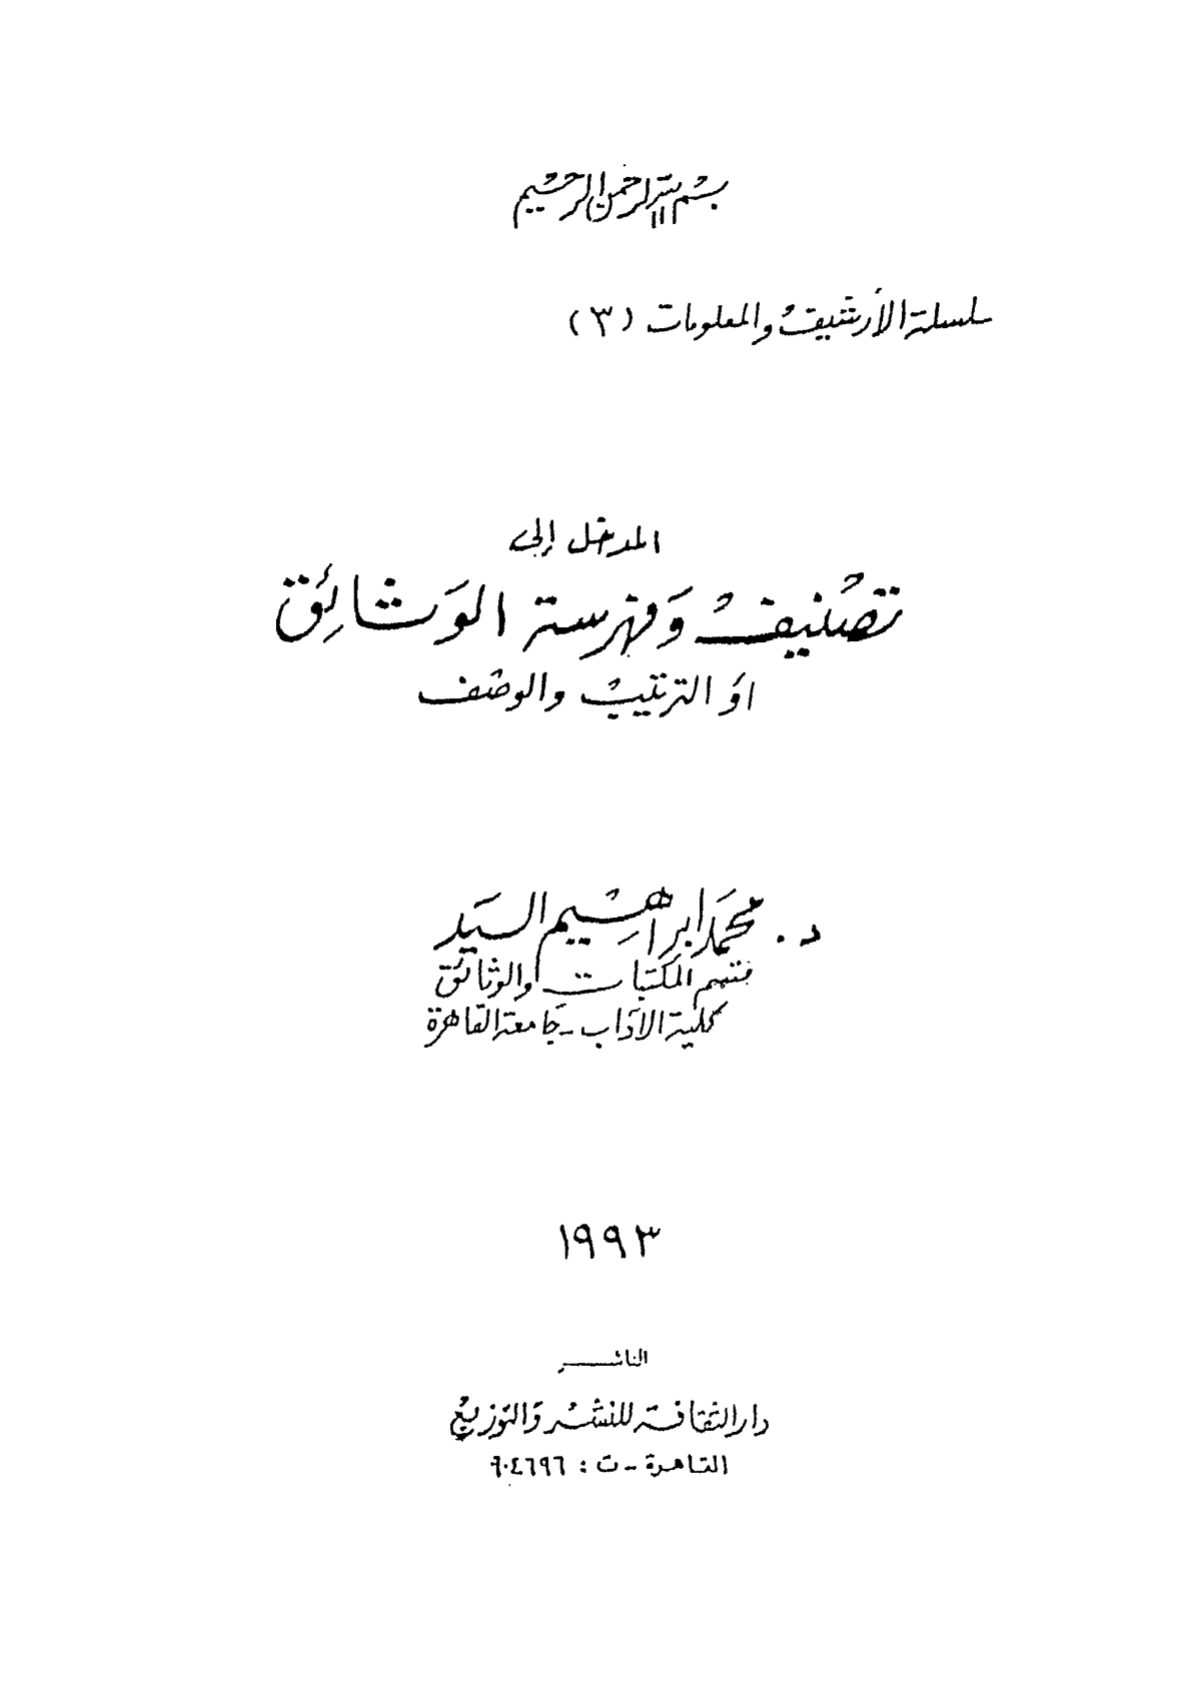 بسم الله الرحمن الرحيم
سلسلة الأرشيف والمعلومات (٣)
المدخل إلى
تصنيف وفهرسة الوثائق
أو الترتيب والوصف
د. محمد إبراهيم السيد
قسم المكتبات والوثائق
كلية الآداب - جامعة القاهرة
١٩٩٣
الناشر
دار الثقافة للنشر والتوزيع
القاهرة - ت : ٩٠٤٦٩٦